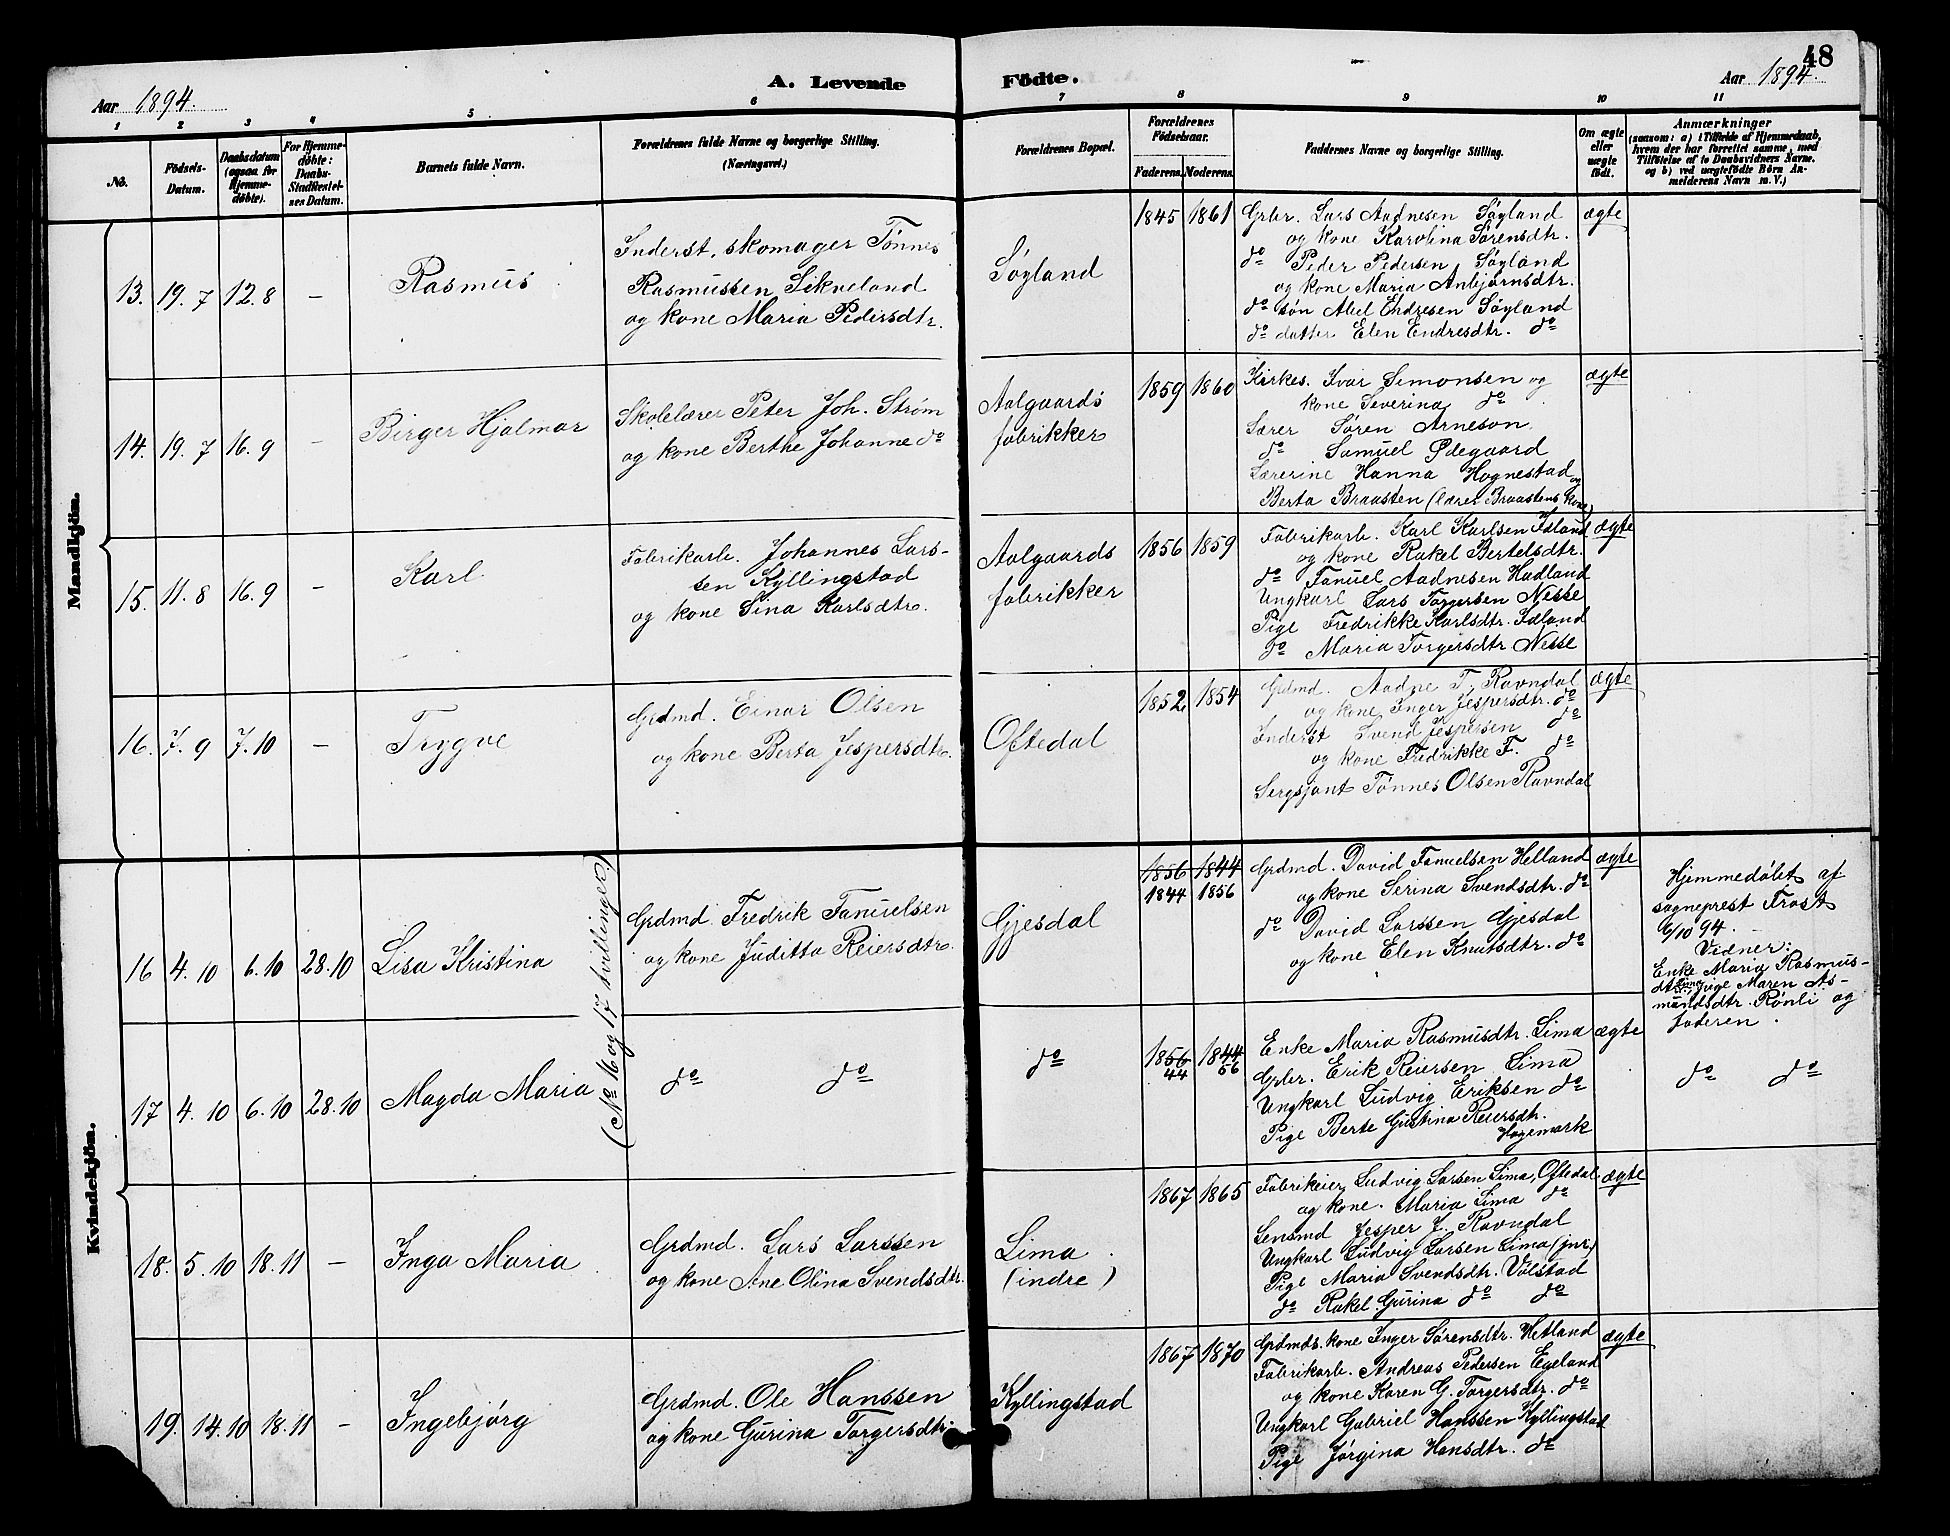 48
Aar 1894.
A. Levende Födte.
Aar 1894.
1 2 3 4 5 6 7 8 9 10 11
No.
Födsels-Datum.
Daabsdatum (ogsaa for Hjemme-døbte).
For Hjemme-døbte: Daabs-Stadfæstel-ses Datum.
Barnets fulde Navn.
Forældrenes fulde Navne og borgerlige Stilling. (Næringsvei.)
Forældrenes Bopæl.
Forældrenes Födselsaar.
Faderens. Moderens.
Faddernes Navne og borgerlige Stilling.
Om ægte eller uægte födt.
Anmærkninger
(saasom: a) i Tilfælde af Hjemmedaab, hvem der har forrettet samme, med Tilföielse af to Daabsvidners Navne, og b) ved uægtefödte Börn An-melderens Navn m. V.)
Mandkjön.
13. 19.7 12.8 – Rasmus
Inderst, skomager Tönnes
Rasmussen Sikveland
og kone Maria Pedersdtr.
Søyland
1845 1861
Grbr. Lars Aadnesen Søyland
og kone Karolina Sørensdtr.
do Peder Pedersen Søyland
og kone Maria Anbjørnsdtr.
do søn Abel Endresen Søyland
do datter Elen Endresdtr. do
ægte
14. 19.7 16.9 – Birger Hjalmar
Skolelærer Peter Joh. Strøm
og kone Berthe Johanne do
Aalgaards
fabrikker
1859 1860
Kirkes. Ivar Simonsen og
kone Severina do
Lærer Søren Arneson
do Samuel Ødegaard
Lærerine Hanna Hognestad og
Berta Braasten (lærer Braastens kone)
ægte
15. 11.8 16.9 – Karl
Fabrikarb. Johannes Lars-
sen Kyllingstad
og kone Sina Karlsdtr.
Aalgaards
fabrikker
1856 1859
Fabrikarb. Karl Karlsen Idland
og kone Rakel Bertelsdtr.
do Tanuel Aadnesen Hadland
Ungkarl Lars Torgersen Nesse
Pige Fredrikke Karlsdtr. Idland
do Maria Torgersdtr Nesse
ægte
16. 7.9 7.10 – Trygve
Grdmd. Einar Olsen
og kone Berta Jespersdtr.
Oftedal
1852 1854
Grdmd. Aadne T. Ravndal
og kone Inger Jespersdtr. do
Inderst Svend Jespersen do
og kone Fredrikke F. do
Sergsjant Tønnes Olsen Ravndal
ægte
Kvindekjön.
16 4.10 6.10 28.10 Lisa Kristina
(No 16 og 17 tvillinger)
Grdmd. Fredrik Tanuelsen
og kone Juditta Reiersdtr.
Gjesdal
1856 1844
1844 1856
Grdmd. David Tanuelsen Helland
og kone Serina Svendsdtr. do
do David Larssen Gjesdal
og kone Elen Knutsdtr. do
ægte
Hjemmedøbt af
sogneprest Frost
6/10 94.
Vidner:
Enke Maria Rasmus-
dtr. Lima, pige Maren As-
mundsdtr. Rønli og
faderen.
17 4.10 6.10 28.10 Magda Maria
do do
do
1856 1844
44 56
Enke Maria Rasmusdtr. Lima
Grbr. Erik Reiersen Lima
Ungkarl Ludvig Eriksen do
Pige Berte Gustina Reiersdtr.
Hagemark
ægte
do do
18. 5.10 18.11 – Inga Maria
Grdmd. Lars Larssen
og kone Ane Olina Svendsdtr.
Lima
(indre)
1867 1865
Fabrikeier Ludvig Larsen Lima, Oftedal
og kone Maria Lima do
Lensmd Jesper J. Ravndal
Ungkarl Ludvig Larsen Lima (jnr.)
Pige Maria Svendsdtr. Vølstad
do Rakel Gurina do do
ægte
19. 14.10 18.11 – Ingebjørg
Grdmd. Ole Hanssen
og kone Gurina Torgersdtr.
Kyllingstad
1867 1870
Grdmds. kone Inger Sørensdtr. Hetland
Fabrikarb. Andreas Pedersen Egeland
og kone Karen G. Torgersdtr. do
Ungkarl Gabriel Hanssen Kyllingstad
Pige Jørgina Hansdtr. do
ægte